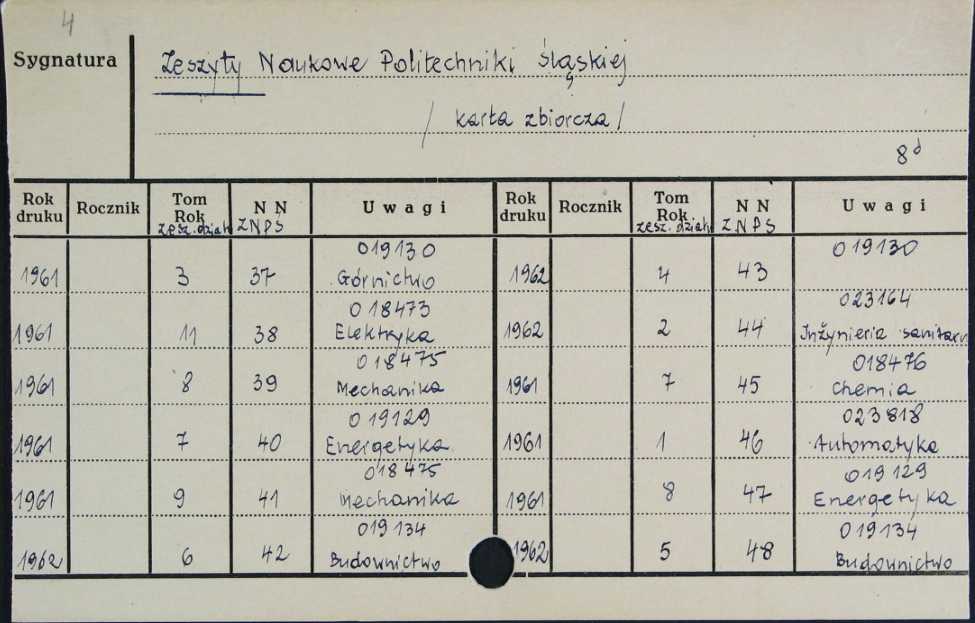 4
Sygnatura
Zeszyty Naukowe Politechniki Śląskiej
/ karta zbiorcza /
8d
Rok druku Rocznik Tom Rok zesz. dział N N Z N P S Uwagi Rok druku Rocznik Tom Rok zesz. dział N N Z N P S Uwagi
1961 3 37 019130 Górnictwo 1962 4 43 019130
1961 11 38 018473 Elektryka 1962 2 44 023164 Inżynieria sanitarn
1961 8 39 018475 Mechanika 1961 7 45 018476 Chemia
1961 7 40 019129 Energetyka 1961 1 46 023818 Automatyka
1961 9 41 018475 Mechanika 1961 8 47 019129 Energetyka
1962 6 42 019134 Budownictwo 1962 5 48 019134 Budownictwo